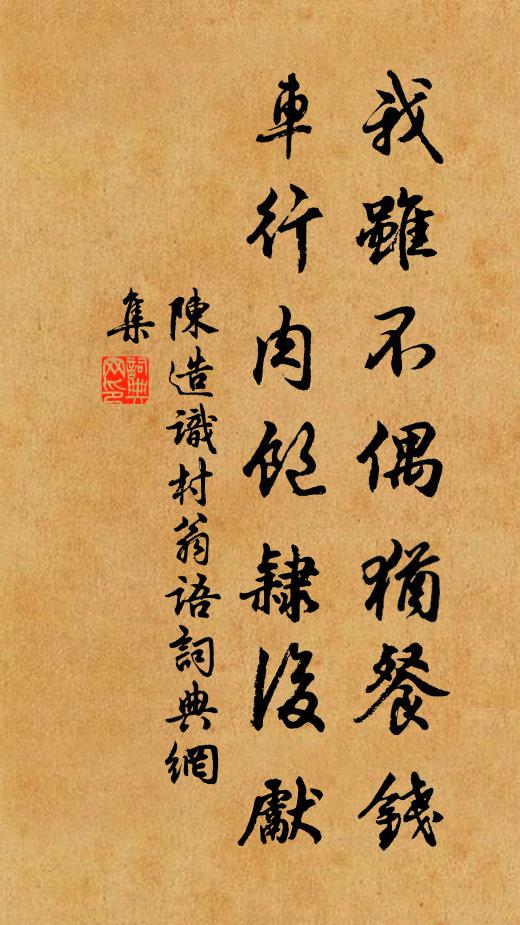 我雖不偶猶餐錢
車行肉飽隸後獻
陳造識村翁語詞典網
集
詞典
网印